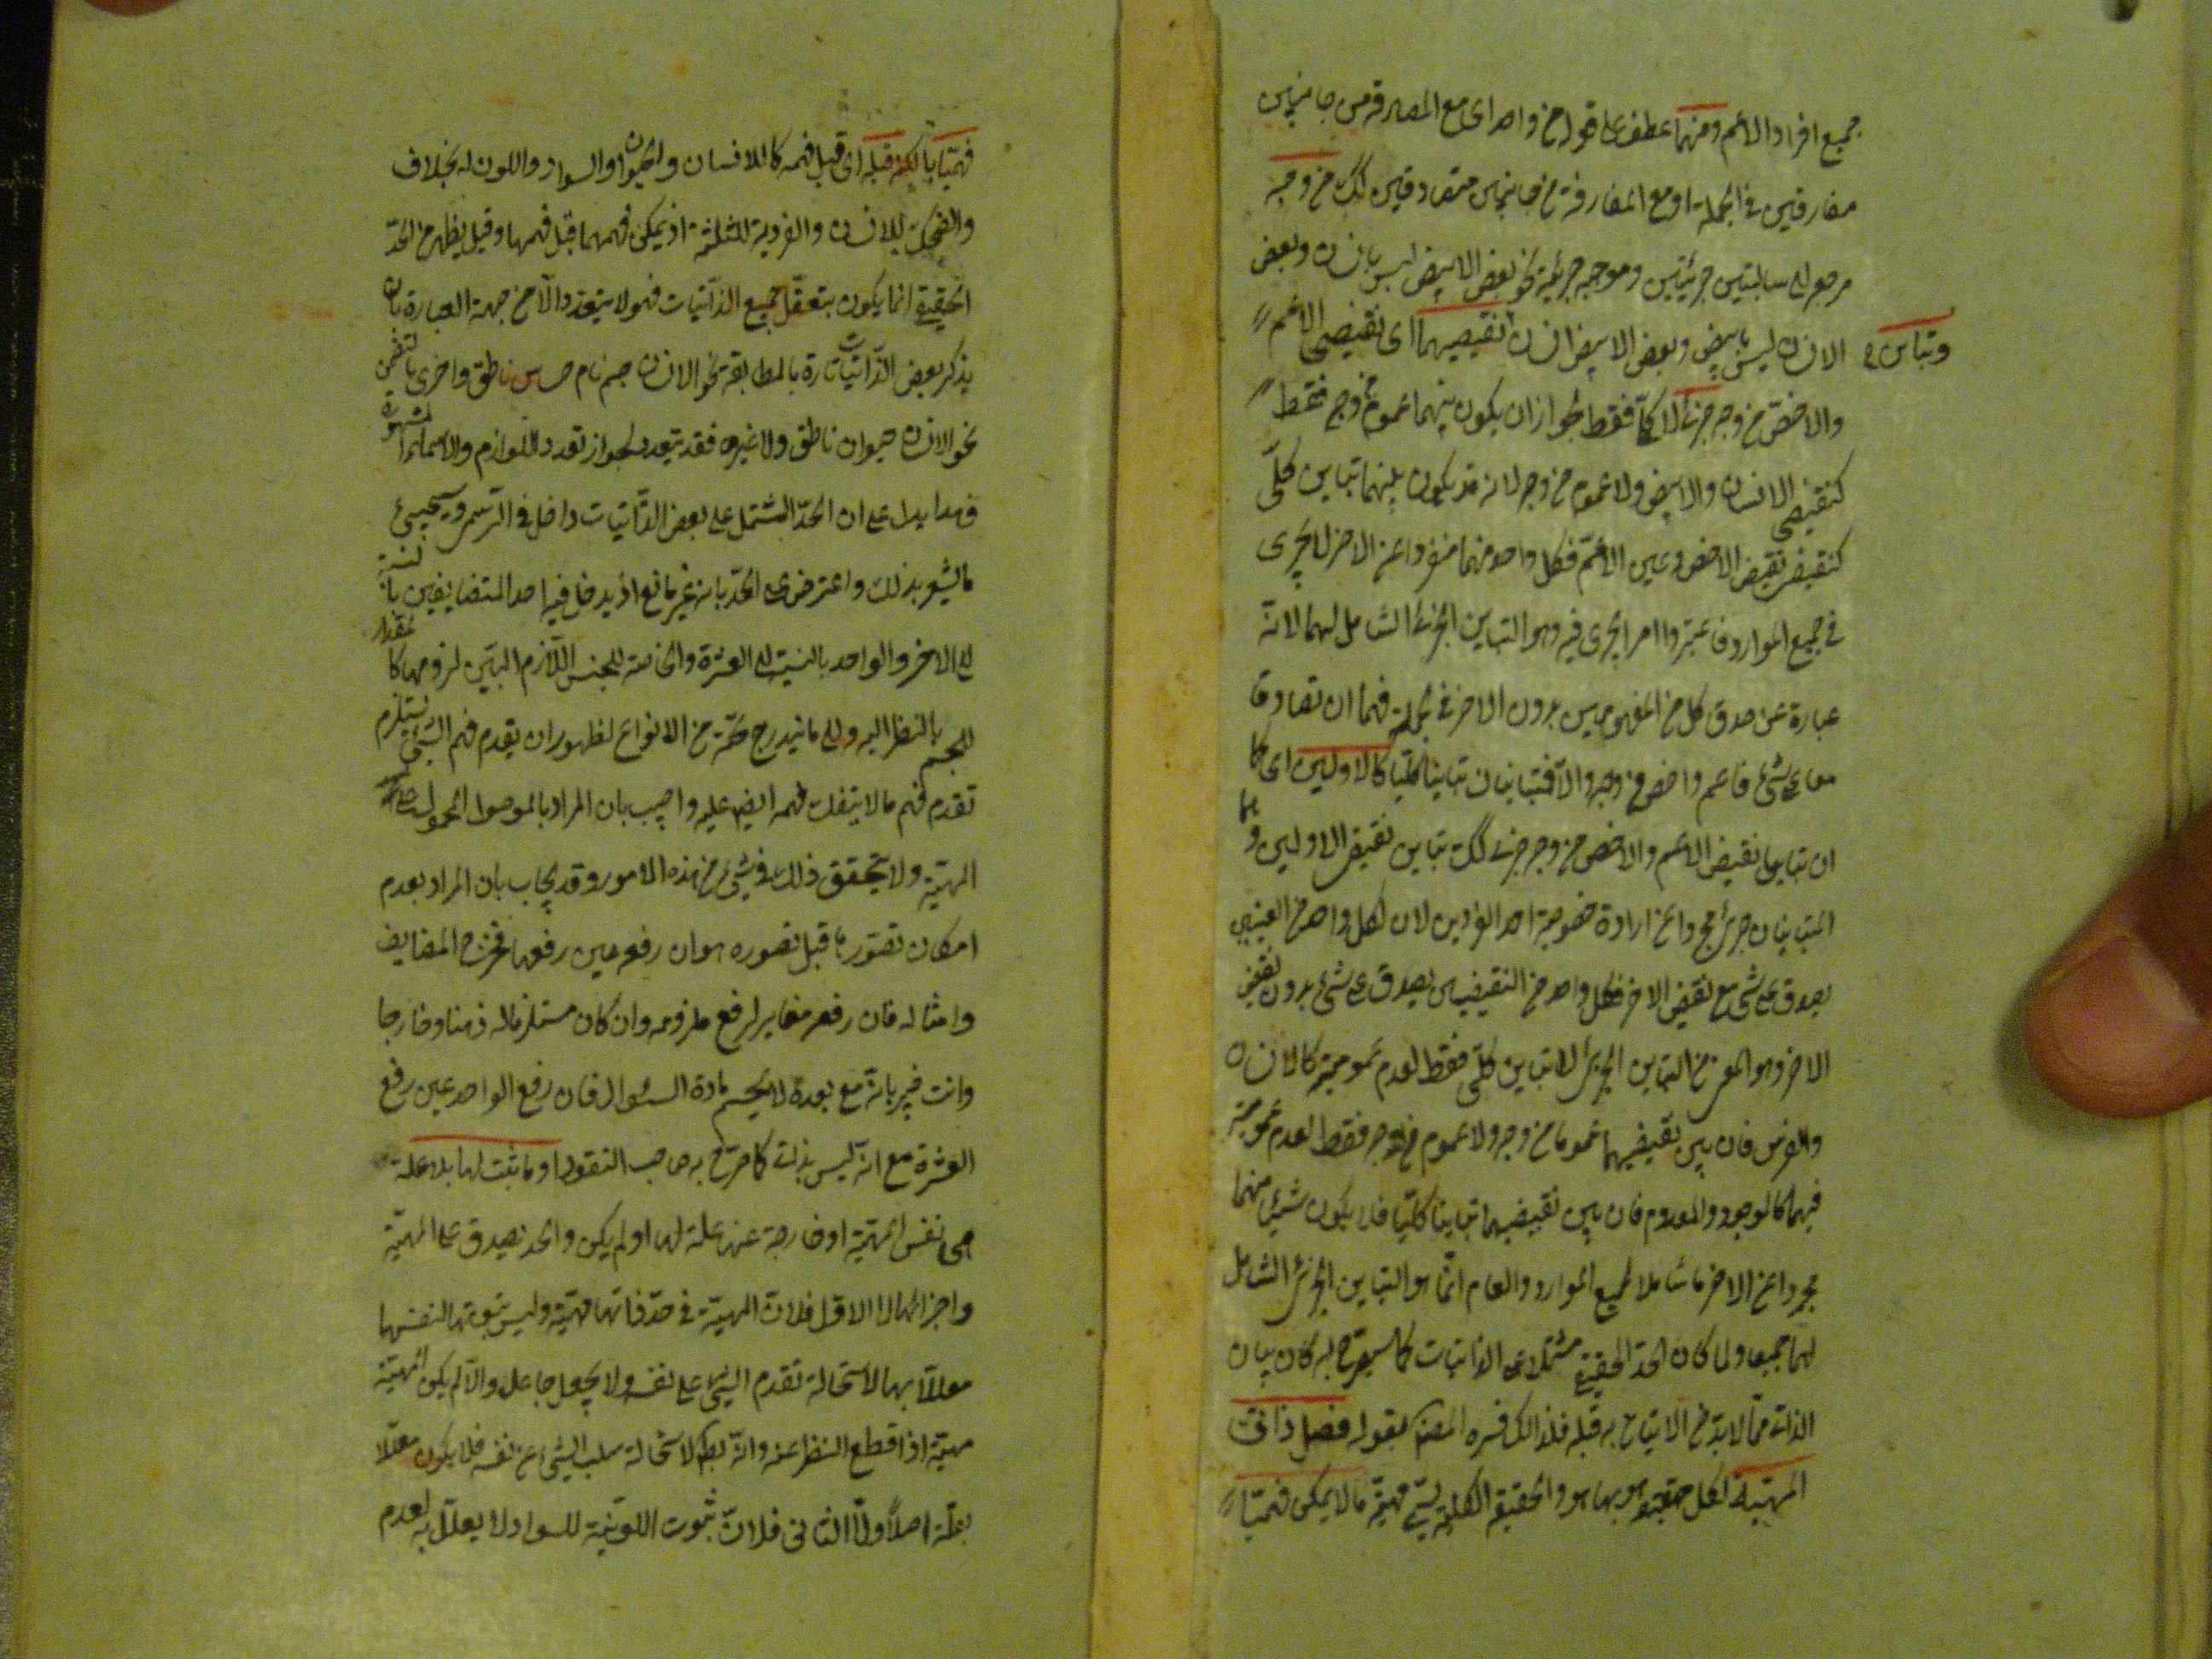 جميع افراد الاعم ومنهما عطف على قوله من واحد اى مع المفارقة من جانبين
مفارقين فى الجملة او مع المفارقة من جانبين متصادقين لك من وجه
مرجع الى سالبتين جزئيتين وموجبة جزئية نحو بعض الابيض ليس بانسان وبعض
الانسان ليس بابيض وبعض الابيض انسان نقيضيهما اى نقيضى الاعم
وتباين
والاخص من وجه جزئى لا كلى فقط لجواز ان يكون بينهما عموم من وجه فقط
كنقيضى الانسان والابيض ولا عموم من وجه لانه قد يكون بينهما تباين كلى
كنقيض نقيض الاخص وعين الاعم فكل واحد منهما منفردا عن الاخر لا يجرى
فى جميع الموارد فاعتبروا امر يجرى فيه وهو التباين الجزئى الشامل لهما لانه
عبارة عن صدق كل من المفهومين بدون الاخر فى الجملة فهما ان تصادقا
معا على شئ فاعم واخص من وجه والا فمتباينان تباينا كليا كالاولين اى كما
ان تباين نقيض الاعم والاخص من وجه جزئى لك تباين نقيض الاولين وهما
المتباينان جزئى مجردا عن ارادة خصوصية احد الفردين لان لكل واحد من العينين
يصدق على شئ مع نقيض الاخر فكل واحد من النقيضين يصدق على شئ بدون نقيض
الاخر وهو المعنى من التباين الجزئى لا تباين كلى فقط لعدم عموميته كالانسان
والفرس فان بين نقيضيهما عموما من وجه ولا عموم من وجه فقط لعدم عموميته
فيهما كالموجود والمعدوم فان بين نقيضيهما تباينا كليا فلا يكون شئ منهما
مجردا عن الاخر شاملا لجميع الموارد والعام انما هو التباين الجزئى الشامل
لهما جميعا ولما كان الحد الحقيقى مشتملا على الذاتيات كما سيصرح به كان بيان
الذات مما لا بد من الاتيان به قبله فلذلك فسره المصنف بقوله فصل ذاتى
المهية لكل حقيقة هو بها هو والحقيقة الكلية تسمى مهية ما لا يمكن فهمها
فهمها بالكنه قبله اى قبل فهمه كاللانسان والحيوان او السواد واللون له بخلاف
والضحك للانسان والفردية للثلثة اذ يمكن فهمهما قبل فهمها وقيل يظهر من الحد
الحقيقى انما يكون بتعقل جميع الذاتيات فهو لا يتعدد الا من جهة العبارة بان
يذكر بعض الذاتيات تارة بالمطابقة نحو الانسان جسم نام حساس ناطق واخرى بالتضمن
نحو الانسان حيوان ناطق ولا غيره فقد يتعدد لجواز تعدد اللوازم والاسماء المشهورة
فهذا يدل على ان الحد المشتمل على بعض الذاتيات داخل فى الرسم وسيجئ
ما يشعر بذلك واعترض على الحد بانه غير مانع اذ يدخل فيه احد المتضايفين بالنسبة
الى الاخر والواحد بالنسبة الى العشرة والخاصة للجنس اللازم البين لزومها كالمقدار
للجسم بالنظر اليه والى ما يندرج تحته من الانواع لظهور ان تقدم فهم الشئ يستلزم
تقدم فهم ما لا ينفك فهمه ايضا عليه واجيب بان المراد بالموصول المحمول على
المهية ولا يتحقق ذلك فى شئ من هذه الامور وقد يجاب بان المراد بعدم
امكان تصور ما قبل تصوره هو ان رفعه عين رفعها فخرج المضايف
وامثاله فان رفعه مغاير لرفع ملزومه وان كان مستلزما له ذهنا وخارجا
وانت خبير بانه مع بعده لا يحسم مادة السئوال فان رفع الواحد عين رفع
العشرة مع انه ليس بذات كما صرح به صاحب النقود او ما ثبت لها بلا علة
هى نفس المهية او خارجة عنها علة لها او لم يكن والحد يصدق على المهية
واجزائها اما الاول فلان المهية فى حد ذاتها مهية وليس ثبوتها لنفسها
معللا بها لاستحالة تقدم الشئ على نفسه ولا بجعل جاعل والا لم يكن المهية
مهية اذا قطع النظر عنه وانه بط لاستحالة سلب الشئ عن نفسه فلا يكون معللا
بعلة اصلا واما الثانى فلان ثبوت اللونية للسواد لا يعلل به لعدم